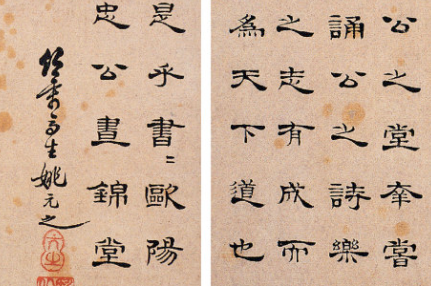 公之堂幸嘗
誦公之詩樂
之志有成而
為天下道也
是乎書〻歐陽
忠公晝錦堂
竹葉亭生姚元之
元之